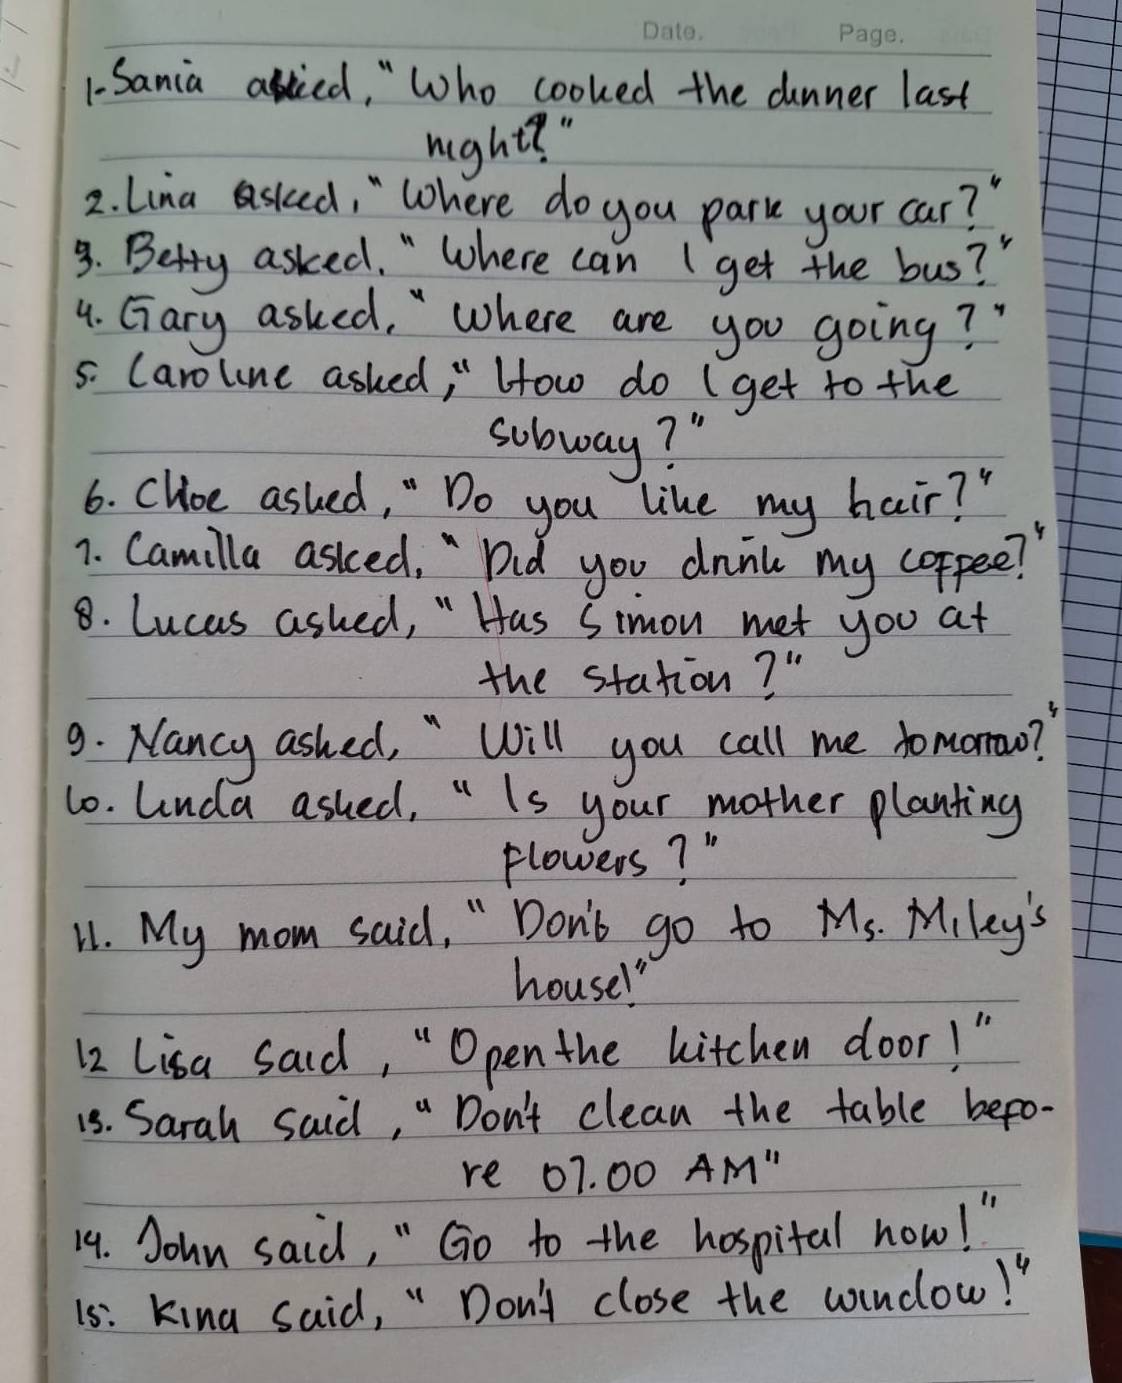 Date. Page.
1. Sania asked, "Who cooked the dinner last
night?"
2. Lina asked, "Where do you park your car?"
3. Betty asked, "Where can I get the bus?"
4. Gary asked, "Where are you going?"
5. Caroline asked, "How do I get to the
subway?"
6. Chloe asked, "Do you like my hair?"
7. Camilla asked, "Did you drink my coffee?"
8. Lucas asked, "Has Simon met you at
the station?"
9. Nancy asked, "Will you call me tomorrow?"
10. Linda asked, "Is your mother planting
flowers?"
11. My mom said, "Don't go to Ms. Miley's
house!"
12 Lisa said, "Open the kitchen door!"
13. Sarah said, "Don't clean the table befo-
re 07.00 AM"
14. John said, "Go to the hospital now!"
15. Kina said, "Don't close the window!"